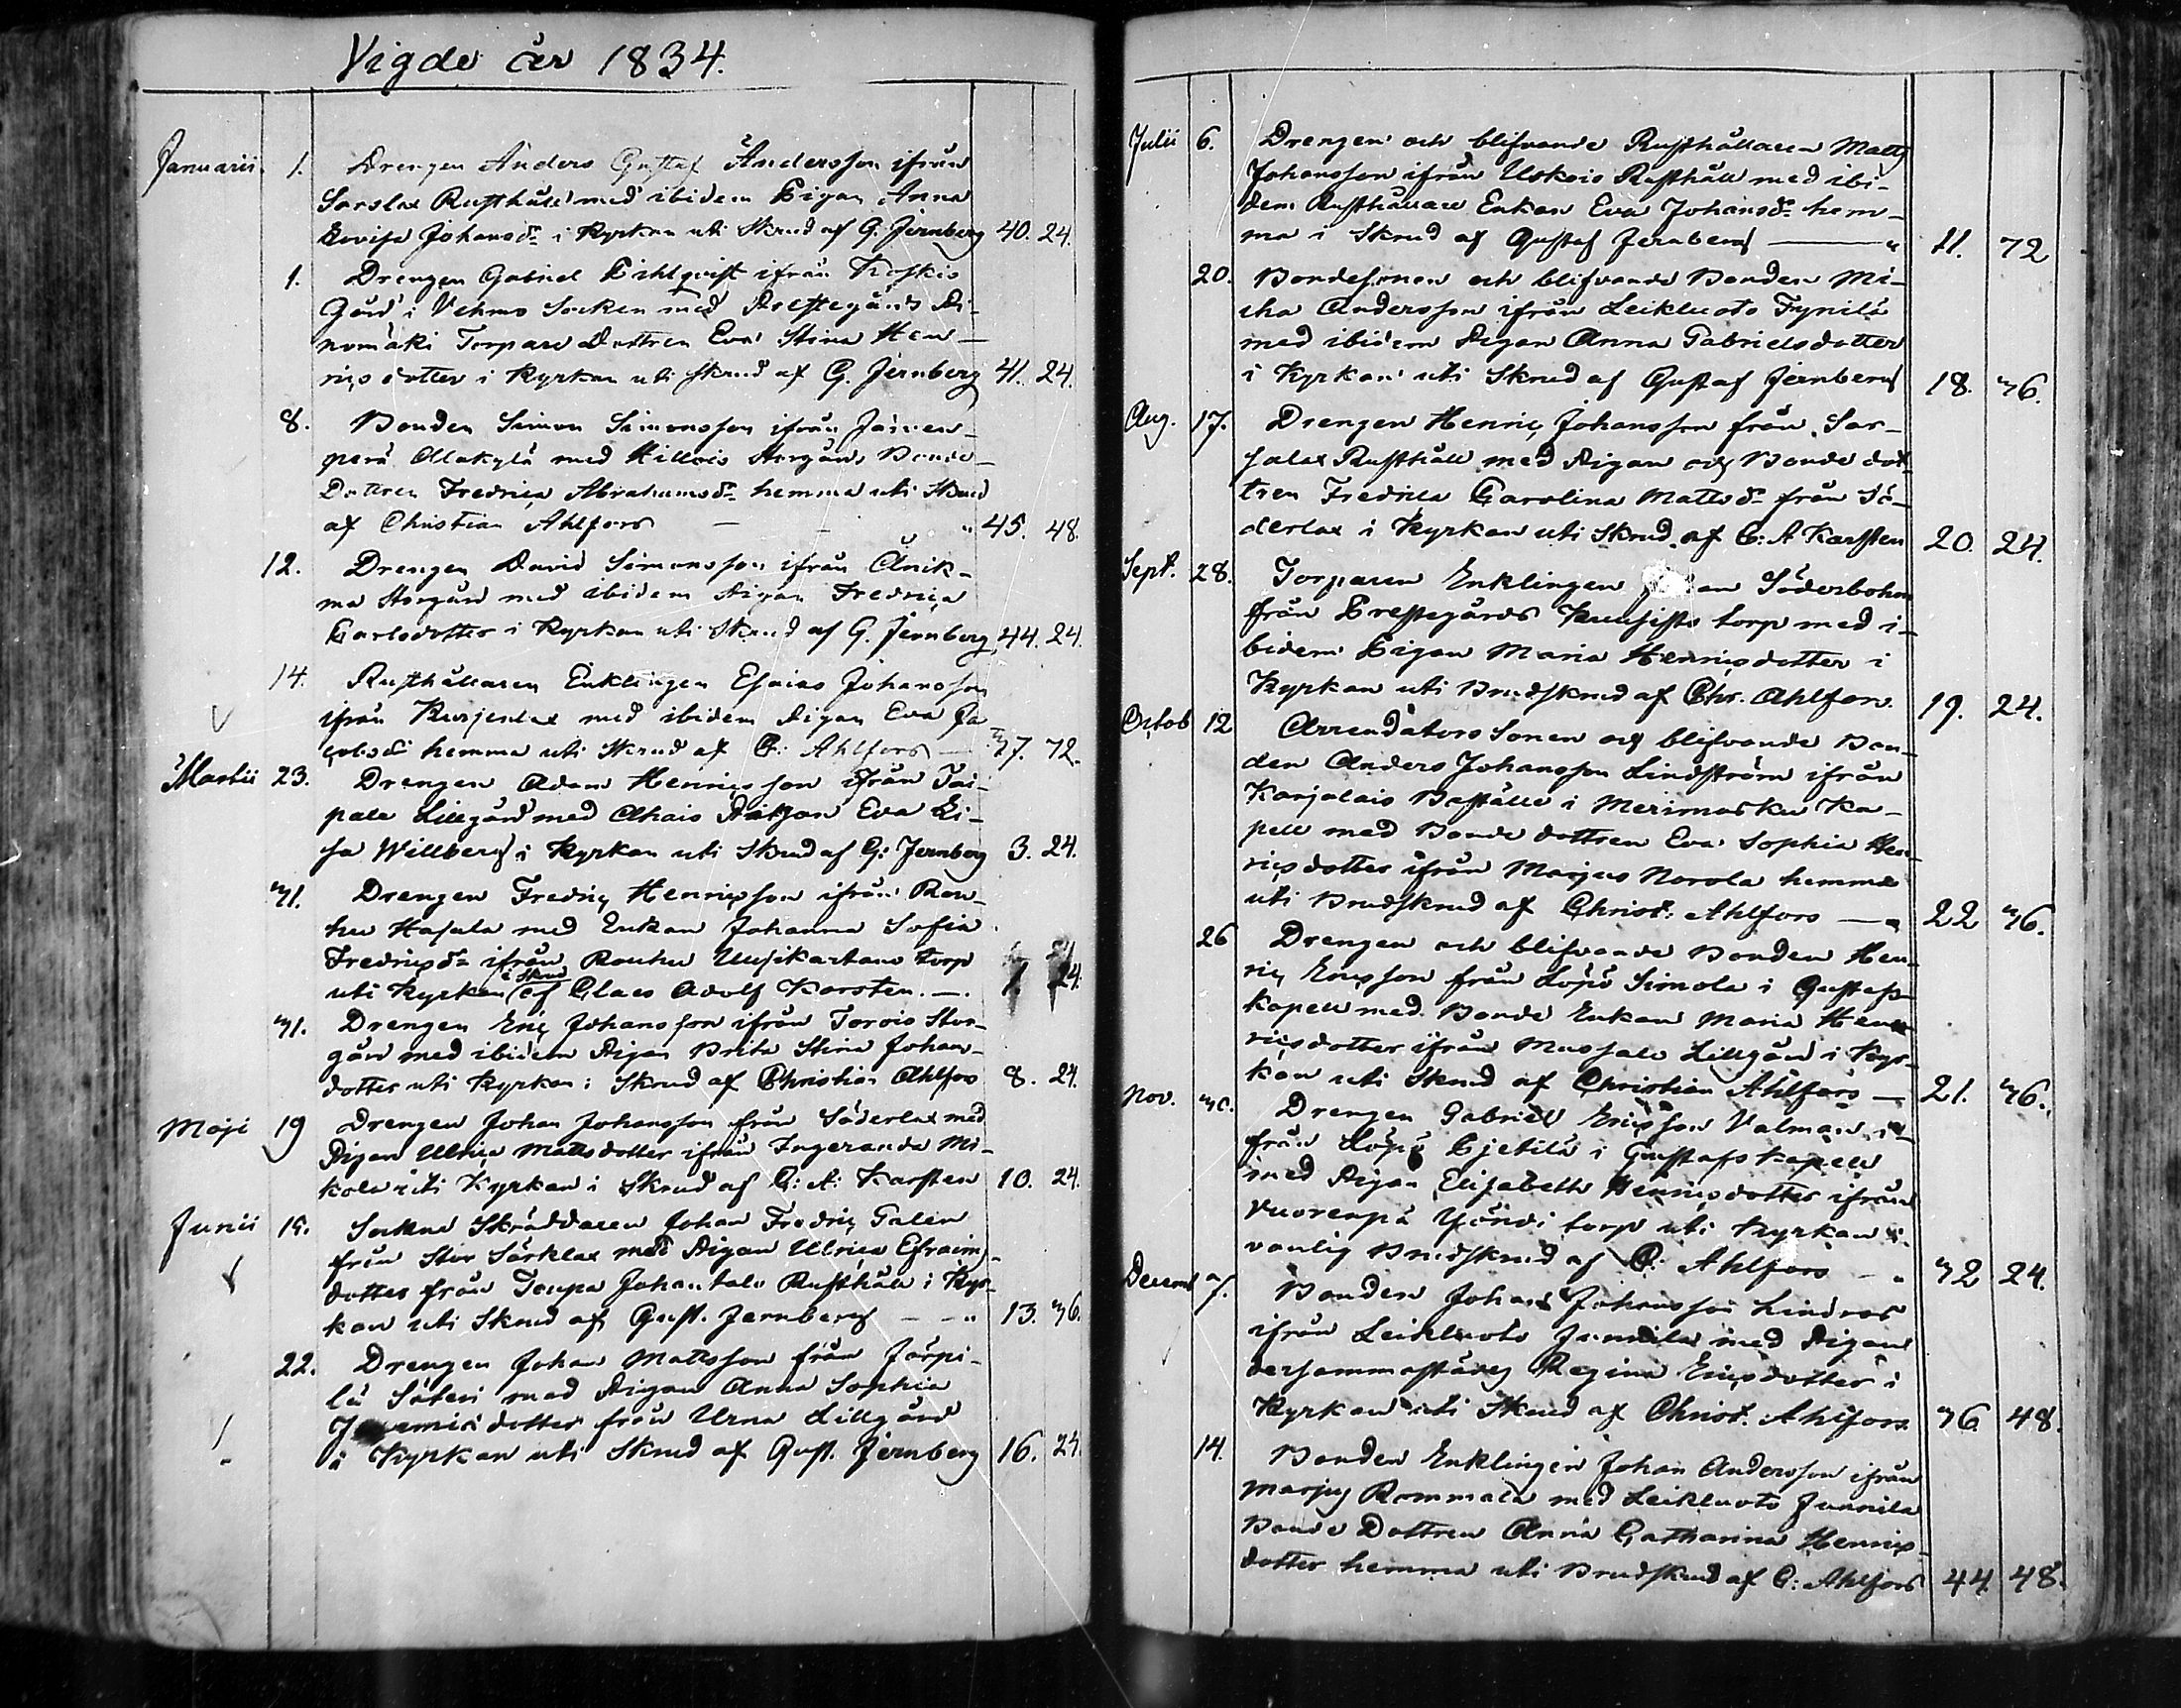 Vigde år 1834.
Januarii 1. Drengen Anders Gustaf Andersson ifrån
Sarslax Rusthåll med ibidem Pigan Anna
Lovisa Johansd:r i Kyrkan uti Skrud af G. Jernberg 40. 24.
1. Drengen Gabriel Pihlqvist ifrån Koskis
Gård i Vehmo Socken med Prestegårds
nomäki Torpare Dottren Eva Stina Hen-
ricsdotter i Kyrkan uti Skrud af G. Jernberg 41. 24.
8. Bonden Simon Simonsson ifrån Järven-
perä Alakylä med Killais Storgårds Bonde-
Dottren Fredrica Abrahamsd:r hemma uti Skrud
af Christian Ahlfors — — " 45. 48.
12. Drengen David Simonsson ifrån Änik-
ma Storgård med ibidem Pigan Fredrica
Carlsdotter i Kyrkan uti Skrud af G. Jernberg 44. 24.
14. Rusthållaren Enklingen Esaias Johansson
ifrån Kurjenlax med ibidem Pigan Eva Ja-
cobsd:r hemma uti Skrud af C: Ahlfors — 37. 72.
Martii 23. Drengen Adam Henricsson ifrån Tai-
pale Lillgård med Ahais Pigan Eva Li-
sa Willberg i Kyrkan uti Skrud af G: Jernberg 3. 24.
31. Drengen Fredric Henricsson ifrån Rau-
hu Hasala med Enkan Johanna Sofia
Fredricsd:r ifrån Rouhu Uusikartano torp
uti Kyrkan i Skrud af Claes Adolf Karsten. — 1. 24.
31. Drengen Eric Johansson ifrån Torois Stor-
gård med ibidem Pigan Brita Stina Johans-
dotter uti Kyrkan i Skrud af Christian Ahlfors 8. 24.
Maji 19 Drengen Johan Johansson från Söderlax med
Pigan Ulrica Mattsdotter ifrån Ingeranda Mi-
kola uti Kyrkan i Skrud af C: A: Karsten 10. 24.
Junii 15. Sockne Skräddaren Johan Fredric Galen
från Stor Särklax med Pigan Ulrica Efraims-
dotter från Taupa Johantalo Rusthåll i Kyr-
kan uti Skrud af Gust. Jernberg — — " 13. 36.
22. Drengen Johan Mattsson från Järpi-
lä Säteri med Pigan Anna Sophia
Jeremiæ dotter från Urna Lillgård
i Kyrkan uti Skrud af Gust. Jernberg 16. 24.
Julii 6. Drengen och blifvande Rusthållaren Matts
Johansson ifrån Uskois Rusthåll med ibi-
dem Rusthållare Enkan Eva Johansd:r hem-
ma i Skrud af Gustaf Jernberg — " 11. 72
20. Bondesonen och blifvande Bonden Mi-
cha Andersson ifrån Leikluoto Fynilä
med ibidem Pigan Anna Gabrielsdotter
i Kyrkan uti Skrud af Gustaf Jernberg 18. 36.
Aug. 17. Drengen Henric Johansson från Sar-
salax Rusthåll med Pigan och Bonde dot-
tren Fredrica Carolina Mattsd:r från Sö-
derlax i Kyrkan uti Skrud af C: A Karsten 20. 24.
Sept. 28. Torparen Enklingen Söderbohm
från Prestegårds torp med i-
bidem Pigan Maria Henricsdotter i
Kyrkan uti Brudskrud af Chr. Ahlfors. 19. 24.
Octob 12 Arrendators Sonen och blifvande Bon-
den Anders Johansson Lindström ifrån
Karjalais Boställe i Merimasku Ka-
pell med Bonde dottren Eva Sophia Hen-
ricsdotter ifrån Marjus Norola hemma
uti Brudskrud af Christ: Ahlfors — " 22 36.
26 Drengen och blifvande Bonden Hen-
ric Ericsson från Löpö Simola i Gustafs
kapell med Bonde Enkan Maria Hen-
ricsdotter ifrån Mussalo Lillgård i Kyr-
kan uti Skrud af Christian Ahlfors — 21. 36.
Nov. 30. Drengen Gabriel Ericsson Valman i-
från Löpö Cjetilä i Gustafs Kapell
med Pigan Elisabeth Henricsdotter ifrån
Vuorenpä Yöndi torp uti Kyrkan i
vanlig Brudskrud af C: Ahlfors — " 32 24.
Decemb 7. Bonden Johan Johansson Lindros
ifrån Leikluoto Junnila med Pigan
dersammastädes Regina Ericsdotter i
Kyrkan uti Skrud af Christ. Ahlfors. 36 48.
14. Bonden Enklingen Johan Andersson ifrån
Marjus Rommala med Leikluoto Junnila
Bonde Dottren Anna Catharina Henrics-
dotter hemma uti Brudskrud af C: Ahlfors 44. 48.